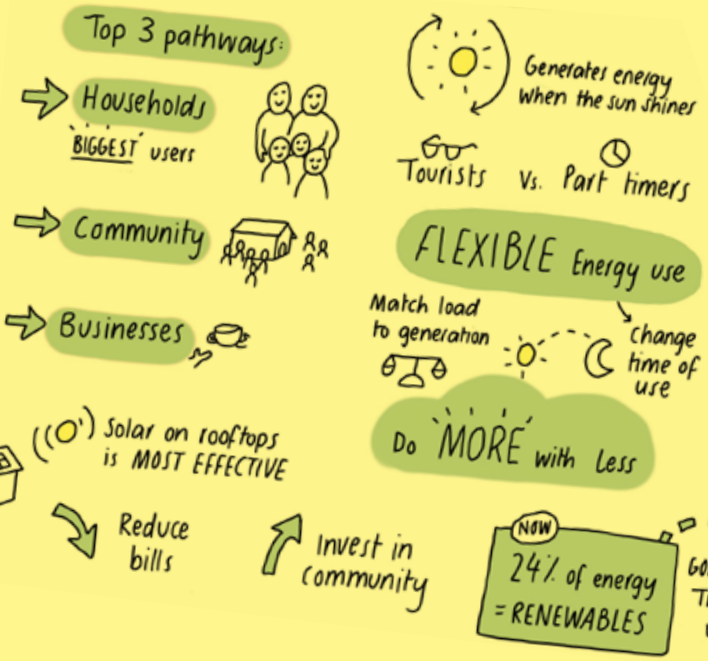 Top 3 pathways:
Households
BIGGEST users
Community
Businesses
Solar on rooftops
is MOST EFFECTIVE
Reduce
bills
Invest in
community
Generates energy
when the sun shines
Tourists Vs. Part timers
FLEXIBLE Energy use
Match load
to generation
Change
time of
use
Do MORE with Less
NOW
24% of energy
= RENEWABLES